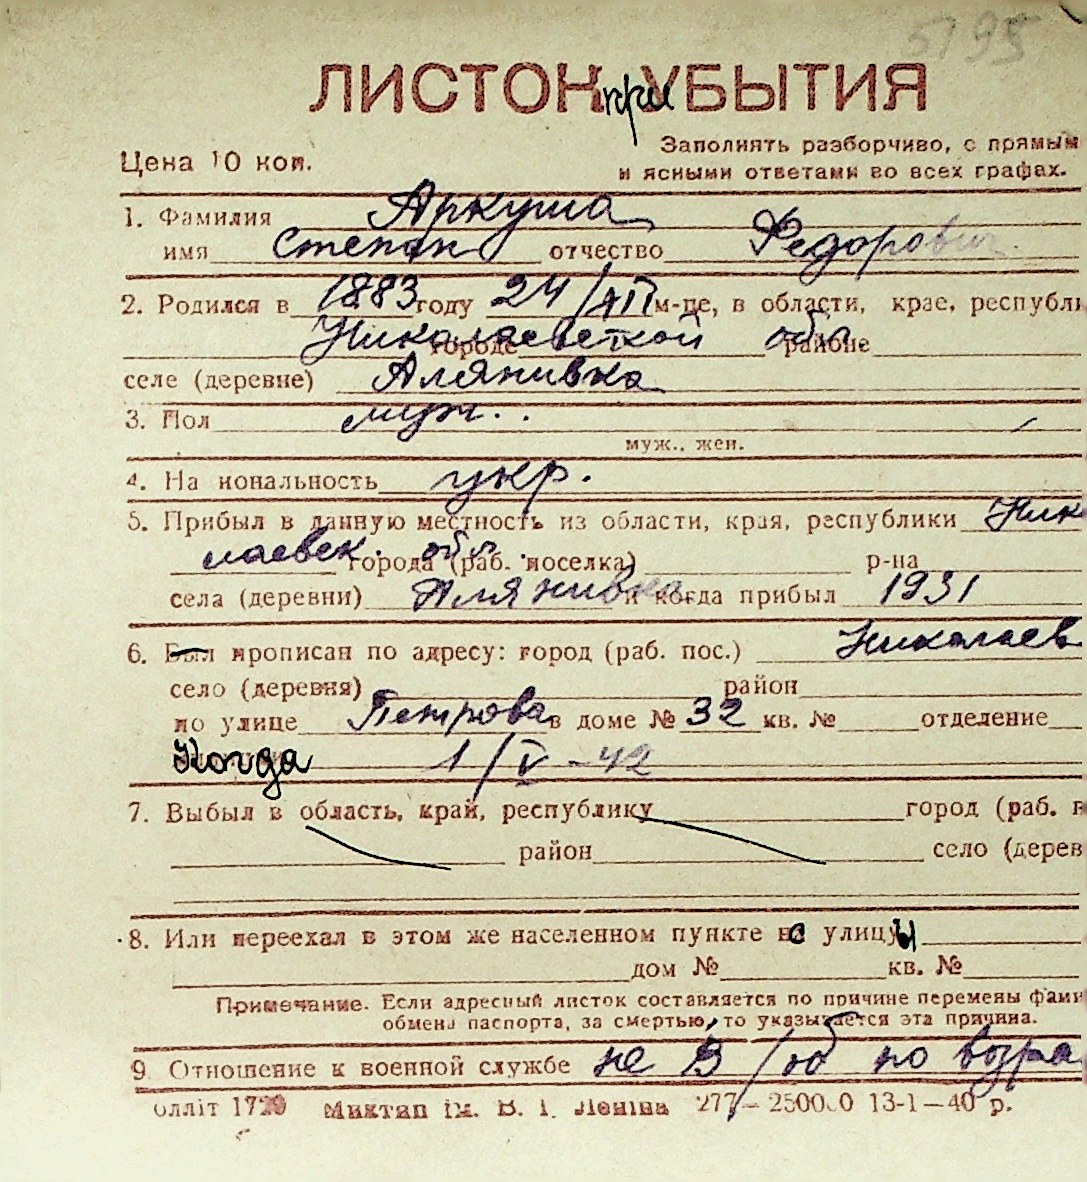 5195
ЛИСТОК при УБЫТИЯ
Цена 10 коп.
Заполнять разборчиво, с прямым
и ясными ответами во всех графах.
1. Фамилия Аркуша
имя Степан отчество Федорович
2. Родился в 1883 году 24/XII м-це, в области, крае, республи
Николаевской городе обл. районе
селе (деревне) Алянивка
3. Пол муж.
муж., жен.
4. На иональность укр.
5. Прибыл в данную местность из области, края, республики Нико
лаевск. обл. города (раб. поселка) р-на
села (деревни) Алянивка и когда прибыл 1931
6. Был прописан по адресу: город (раб. пос.) Николаев
село (деревня) район
по улице Петрова в доме № 32 кв. № отделение
Когда 1/V-42
7. Выбыл в область, край, республику город (раб. п
район село (дерев
8. Или переехал в этом же населенном пункте с улицы
дом № кв. №
Примечание. Если адресный листок составляется по причине перемены фами
обмена паспорта, за смертью, то указывается эта причина.
9. Отношение к военной службе не в/об по возра
олліт 1720 Миктип ім. В. І. Леніна 277—250000 13-1—40 р.